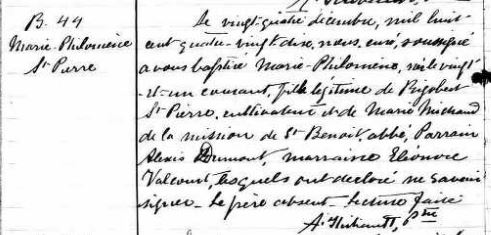 B. 44
Marie-Philomène
St Pierre
Le vingt-quatre decembre, mil huit
cent quatre-vingt dix, nous, curé, soussigné
avons baptisé Marie-Philomène, née le vingt
-et-un courant, fille légitime de Rigobert
St Pierre, cultivateur et de Marie Michaud
de la mission de St Benoit, abbé, Parrain
Alexis Dumont, marraine Eléonore
Valcourt, lesquels ont declaré ne savoir
signer. Le père absent. Lecture faite
A. Thibault, Ptre